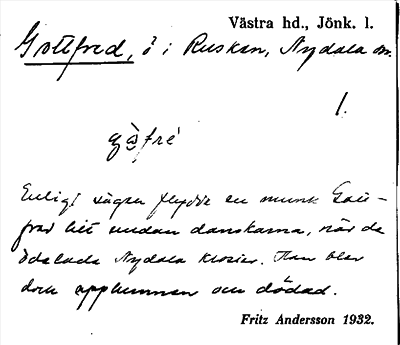 Västra hd., Jönk. l.
Gottfred, ö i Ruskan, Nydala sn.
1.
gòfrè
Enligt sägen flydde en munk Gott-
fred hit undan danskarna, när de
ödelade Nydala kloster. Han blev
dock upphunnen och dödad.
Fritz Andersson 1932.